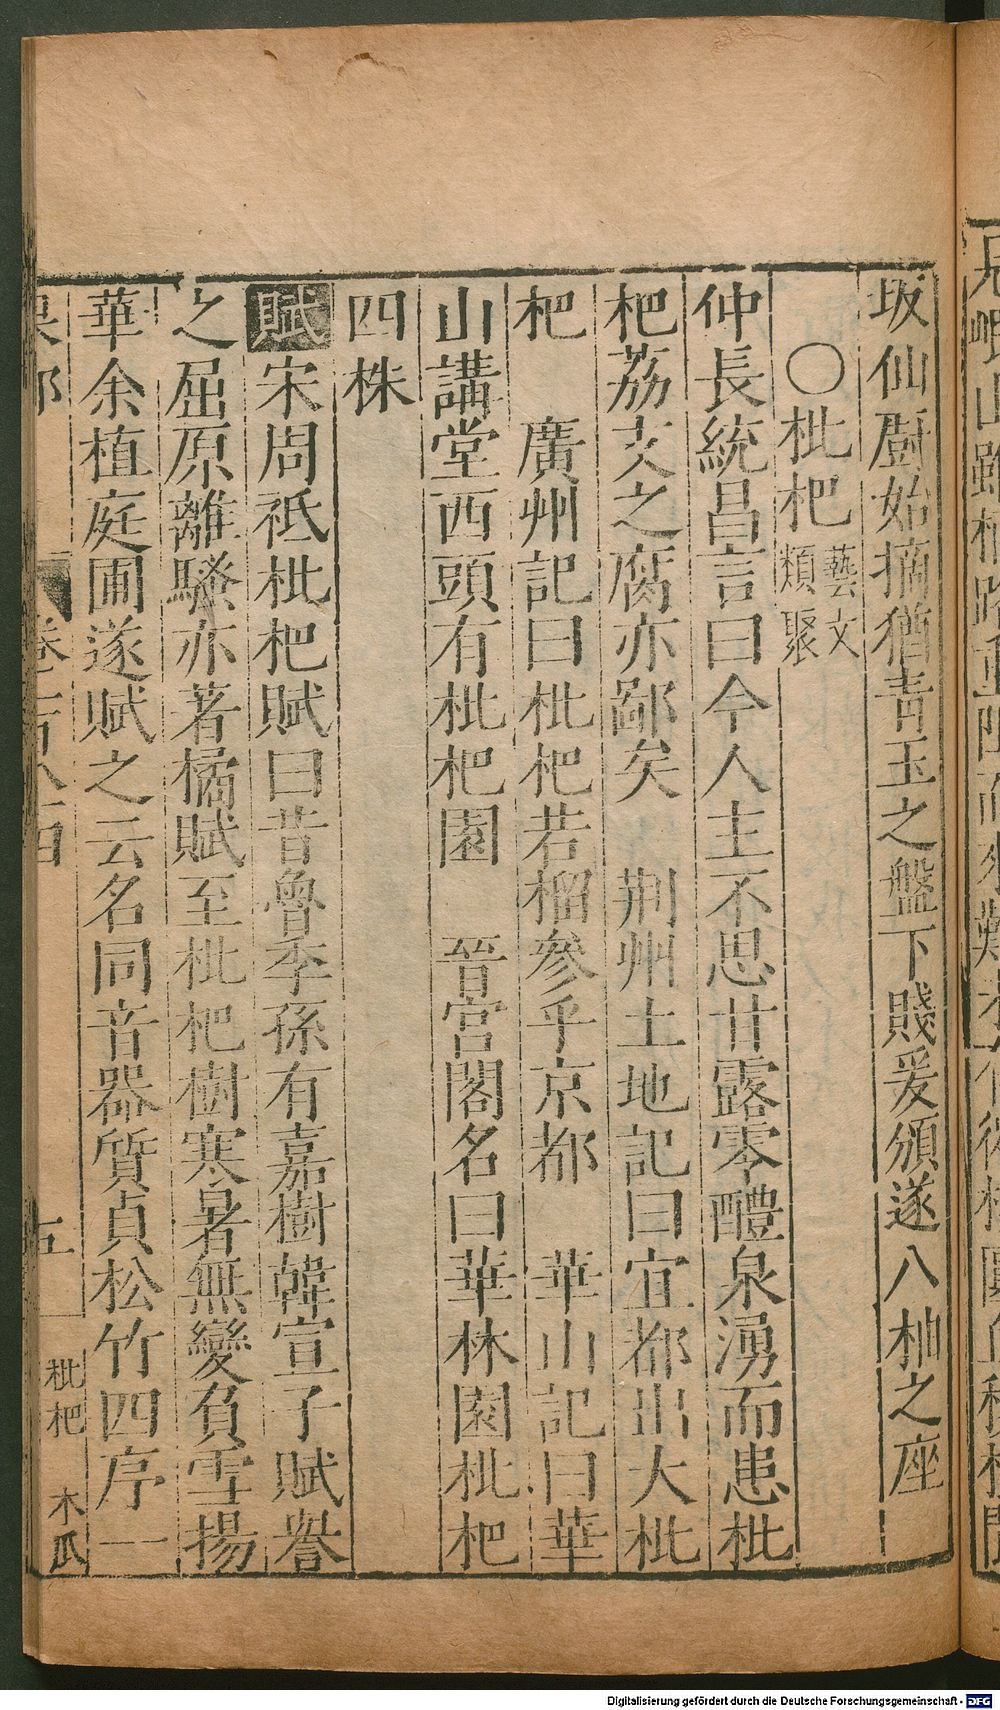 坂仙廚始摘猶青玉之盤下賤爰頒遂八柚之座
○枇杷藝文類聚
仲長統昌言曰今人主不思甘露零醴泉湧而患枇
杷荔芰之腐亦鄙矣 荆州土地記曰宜都出大枇
杷 廣州記曰枇杷若榴參乎京都 華山記曰華
山講堂西頭有枇杷園 晉宮閣名曰華林園枇杷
四株
賦宋周祗枇杷賦曰昔魯季孫有嘉樹韓宣子賦譽
之屈原離騷亦著橘賦至枇杷樹寒暑無變負雪揚
華余植庭圃遂賦之云名同音器質貞松竹四序一
五 枇杷 木瓜
Digitalisierung gefördert durch die Deutsche Forschungsgemeinschaft - DFG